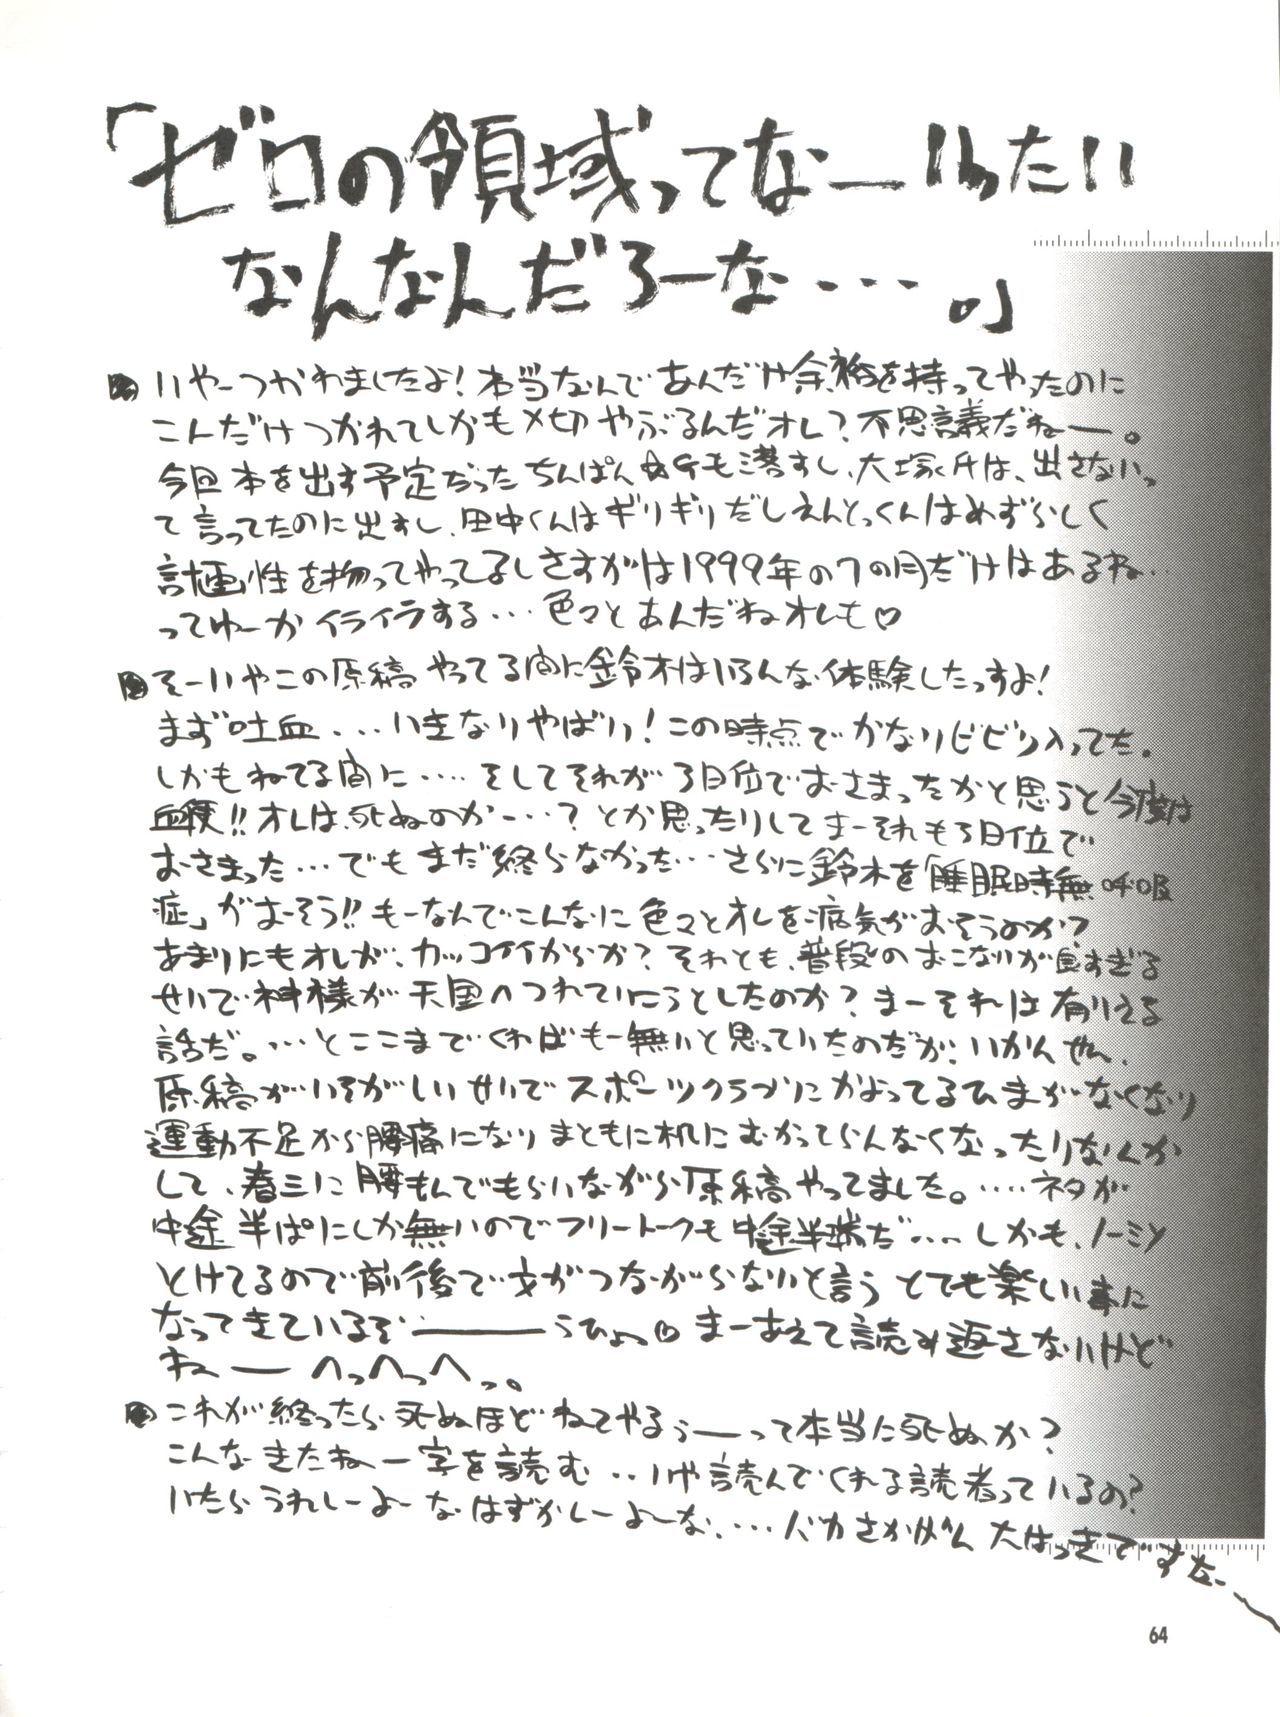 「ゼロの領域ってなーいったい
なんなんだろーな・・・。」
いやーつかれましたよ!本当なんであんだけ余裕を持ってやったのに
こんだけつかれてしかも〆切やぶるんだオレ?不思議だねー。
今回本を出す予定だったちんぱん☆Gも落すし、大塚氏は、出さないっ
て言ってたのに出すし、田中くんはギリギリだしえんどっくんはめずらしく
計画性を持ってやってるしさすがは1999年の7の月だけはあるね‥
ってゆーかイライラする・・・色々とあんだねオレも♡
そーいやこの原稿やってる間に鈴木はいろんな体験したっすよ!
まず吐血・・・いきなりやばいっ!この時点でかなりビビリ入ってた。
しかもねてる間に・・・・そしてそれが3日位でおさまったかと思うと今度は
血便!!オレは、死ぬのか・・・・?とか思ったりしてまーそれも3日位で
おさまった・・・でもまだ終らなかった・・・さらに鈴木を「睡眠時無呼吸
症」がおそう!!もーなんでこんなに色々とオレを病気がおそうのか?
あまりにもオレが、カッコイイからか?それとも、普段のおこないが良すぎる
せいで神様が天国へつれていこうとしたのか?まーそれは有りえる
話だ。・・・とここまでくればもー無いと思っていたのだが、いかんせん、
原稿がいそがしいせいでスポーツクラブにかよってるひまがなくなり
運動不足から腰痛になりまともに机にむかってらんなくなったりなんか
して、春三に腰もんでもらいながら原稿やってました。・・・・ネタが
中途半ぱにしか無いのでフリートークも中途半端だ・・・・しかも、ノーミソ
とけてるので前後で文がつながらないと言うとても楽しい事に
なってきているぞ――――うひょっ♡まーあえて読み返さないけど
ねーへっへっへっ。
これが終ったら死ぬほどねてやるぅーって本当に死ぬか?
こんなきたねー字を読む‥いや読んでくれる読者っているの?
いたらうれしーよーなはずかしーよーな、・・・バカさかげん大はっきですなー
64